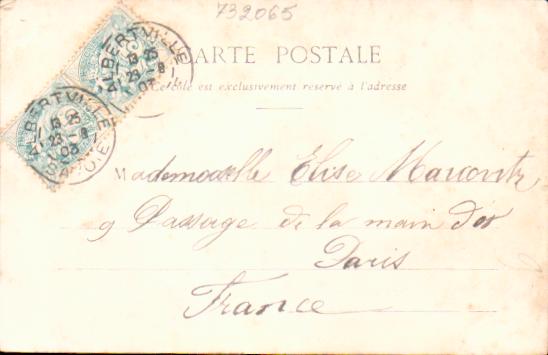 732065
CARTE POSTALE
Ce côté est exclusivement réservé à l'adresse
ALBERTVILLE
13 25
23 - 8
07
ALBERTVILLE
13 25
23 - 8
03
SAVOIE
Mademoiselle Elise Marcovitz
9 Passage de la main d'or
Paris
France